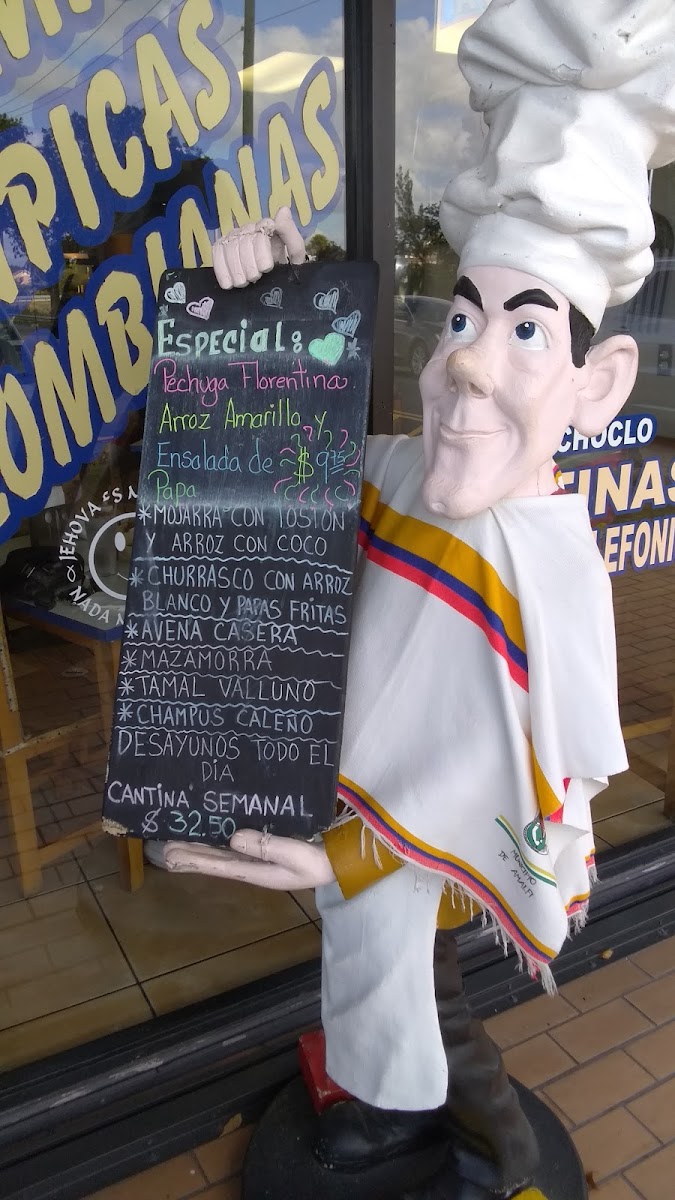 PICAS
OMBIANAS
Especial:
Pechuga Florentina
Arroz Amarillo y
Ensalada de $9.75
Papa
*MOJARRA CON TOSTON
Y ARROZ CON COCO
*CHURRASCO CON ARROZ
BLANCO Y PAPAS FRITAS
*AVENA CASERA
*MAZAMORRA
*TAMAL VALLUNO
*CHAMPUS CALEÑO
DESAYUNOS TODO EL
DIA
CANTINA SEMANAL
$32.50
JEHOVA ES M
NADA
CHOCLO
INAS
LEFONI
MUNICIPIO
DE AMALFI